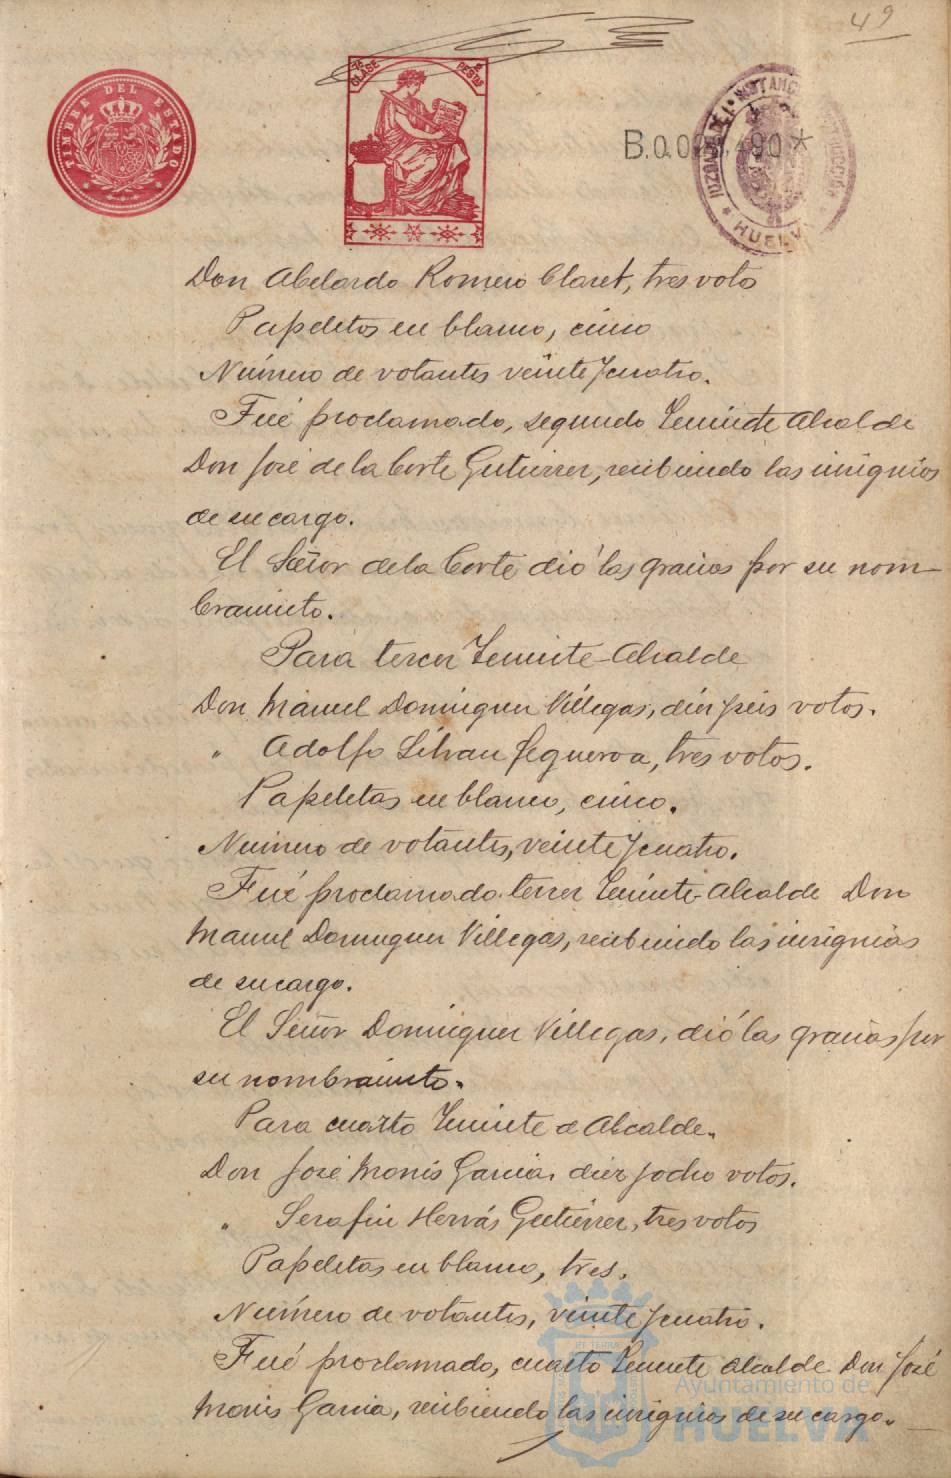 49
TIMBRE DEL ESTADO
7ª CLASE
PESETAS
B.0.0
490*
JUZGADO DE 1ª INSTANCIA
HUELVA
Don Abelardo Romero Claret, tres votos
Papeletas en blanco, cinco
Número de votantes veinte y cuatro.
Fué proclamado, segundo Teniente Alcalde
Don José de la Corte Gutierrez, recibiendo las insignias
de su cargo.
El Señor de la Corte dió las gracias por su nom-
bramiento.
Para tercer Teniente-Alcalde
Don Manuel Dominguez Villegas, diez y seis votos.
" Adolfo Silvan Figueroa, tres votos.
Papeletas en blanco, cinco.
Número de votantes, veinte y cuatro.
Fué proclamado tercer Teniente-Alcalde Don
Manuel Dominguez Villegas, recibiendo las insignias
de su cargo.
El Señor Dominguez Villegas, dió las gracias por
su nombramiento.
Para cuarto Teniente de Alcalde.
Don José Monis Garcia, diez y ocho votos.
" Serafin Hervás Gutiérrez, tres votos
Papeletas en blanco, tres.
Número de votantes, veinte y cuatro.
Fué proclamado, cuarto Teniente Alcalde Don José
Monis Garcia, recibiendo las insignias de su cargo.
Ayuntamiento de
HUELVA